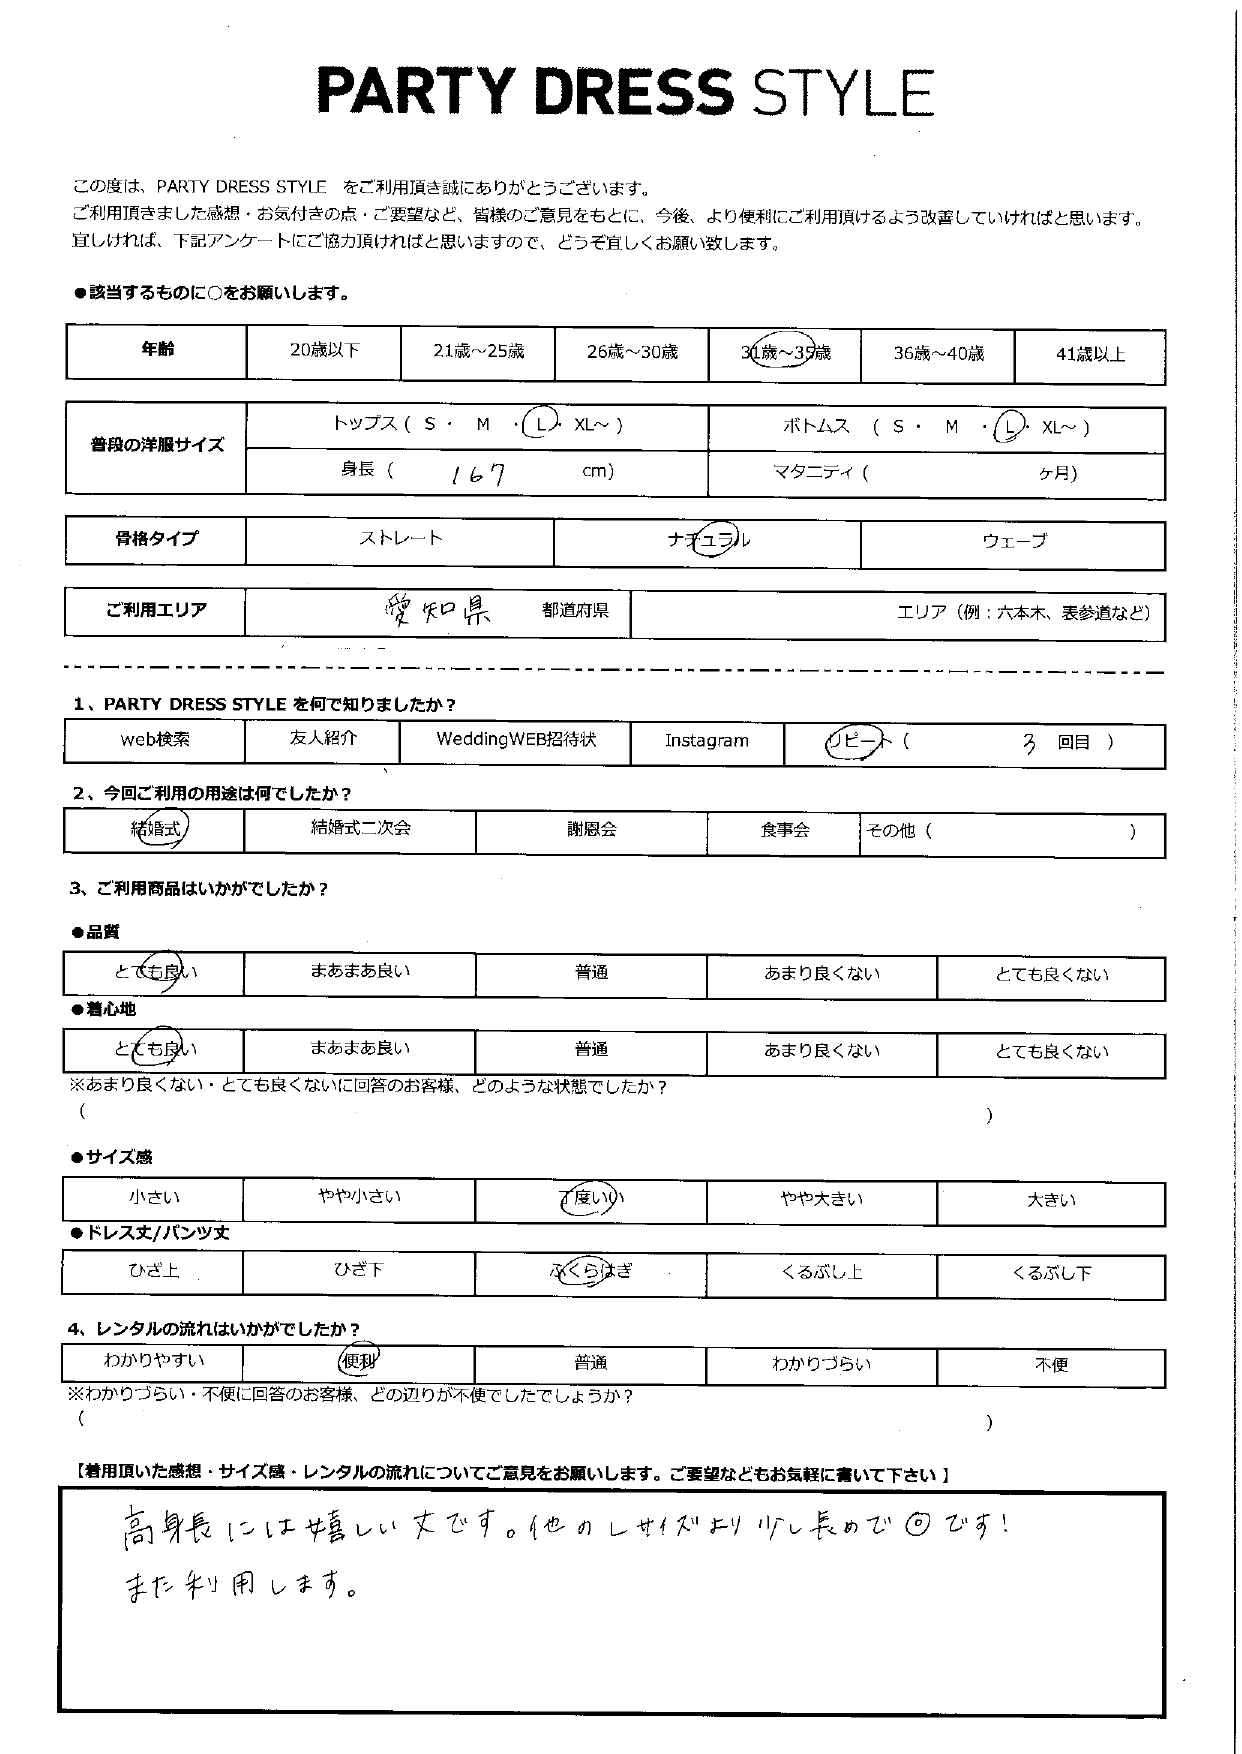 PARTY DRESS STYLE
この度は、PARTY DRESS STYLE をご利用頂き誠にありがとうございます。
ご利用頂きました感想・お気付きの点・ご要望など、皆様のご意見をもとに、今後、より便利にご利用頂けるよう改善していければと思います。
宜しければ、下記アンケートにご協力頂ければと思いますので、どうぞ宜しくお願い致します。
●該当するものに○をお願いします。
年齢 20歳以下 21歳～25歳 26歳～30歳 31歳～35歳 36歳～40歳 41歳以上
普段の洋服サイズ トップス ( S ・ M ・ L ・ XL～ ) ボトムス ( S ・ M ・ L ・ XL～ )
身長 ( 167 cm) マタニティ ( ヶ月)
骨格タイプ ストレート ナチュラル ウェーブ
ご利用エリア 愛知県 都道府県 エリア（例：六本木、表参道など）
1、PARTY DRESS STYLE を何で知りましたか？
web検索 友人紹介 WeddingWEB招待状 Instagram リピート ( 3 回目 )
2、今回ご利用の用途は何でしたか？
結婚式 結婚式二次会 謝恩会 食事会 その他 ( )
3、ご利用商品はいかがでしたか？
●品質
とても良い まあまあ良い 普通 あまり良くない とても良くない
●着心地
とても良い まあまあ良い 普通 あまり良くない とても良くない
※あまり良くない・とても良くないに回答のお客様、どのような状態でしたか？
( )
●サイズ感
小さい やや小さい 丁度いい やや大きい 大きい
●ドレス丈/パンツ丈
ひざ上 ひざ下 ふくらはぎ くるぶし上 くるぶし下
4、レンタルの流れはいかがでしたか？
わかりやすい 便利 普通 わかりづらい 不便
※わかりづらい・不便に回答のお客様、どの辺りが不便でしたでしょうか？
( )
【着用頂いた感想・サイズ感・レンタルの流れについてご意見をお願いします。ご要望などもお気軽に書いて下さい】
高身長には嬉しい丈です。他のLサイズより少し長めで◎です！
また利用します。